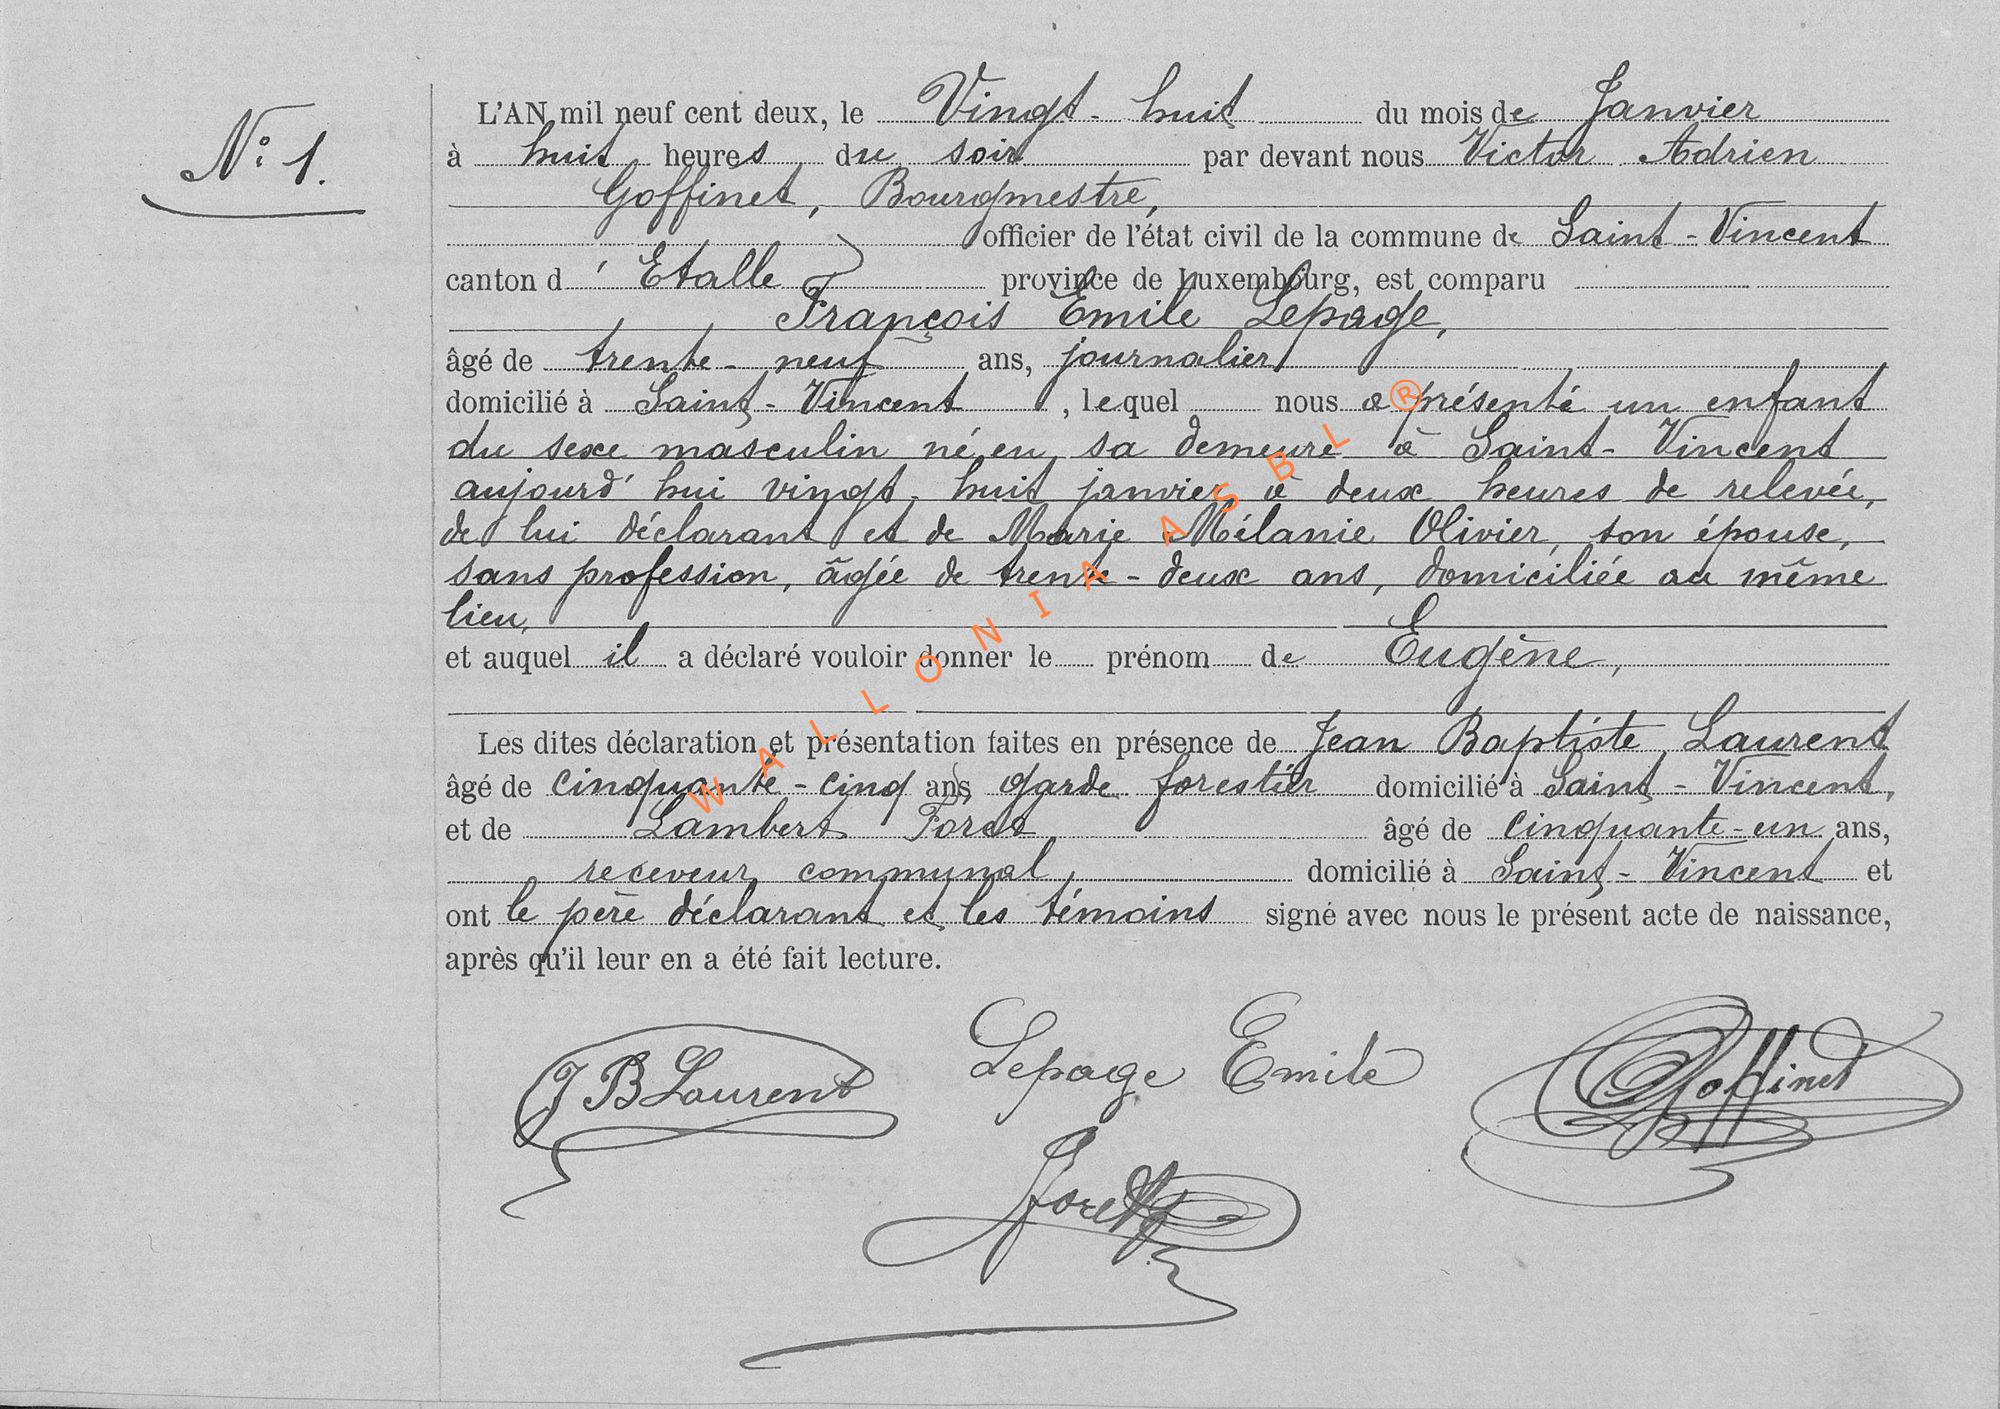 N° 1.
L'AN mil neuf cent deux, le Vingt-huit du mois de Janvier
à huit heures du soir par devant nous Victor Adrien
Goffinet, Bourgmestre,
officier de l'état civil de la commune de Saint-Vincent
canton d'Etalle province de Luxembourg, est comparu
François Emile Lepage,
âgé de trente-neuf ans, journalier
domicilié à Saint-Vincent, lequel nous a présenté un enfant
du sexe masculin né en sa demeure à Saint-Vincent
aujourd'hui vingt-huit janvier à deux heures de relevée,
de lui déclarant et de Marie Mélanie Olivier, son épouse,
sans profession, âgée de trente-deux ans, domiciliée au même
lieu,
et auquel il a déclaré vouloir donner le prénom de Eugène,
Les dites déclaration et présentation faites en présence de Jean Baptiste Laurent
âgé de cinquante-cinq ans, garde forestier domicilié à Saint-Vincent,
et de Lambert Foret âgé de cinquante-un ans,
receveur communal domicilié à Saint-Vincent et
ont le père déclarant et les témoins signé avec nous le présent acte de naissance,
après qu'il leur en a été fait lecture.
J B Laurent Lepage Emile Goffinet
Foret
WALLONIA ASBL ®